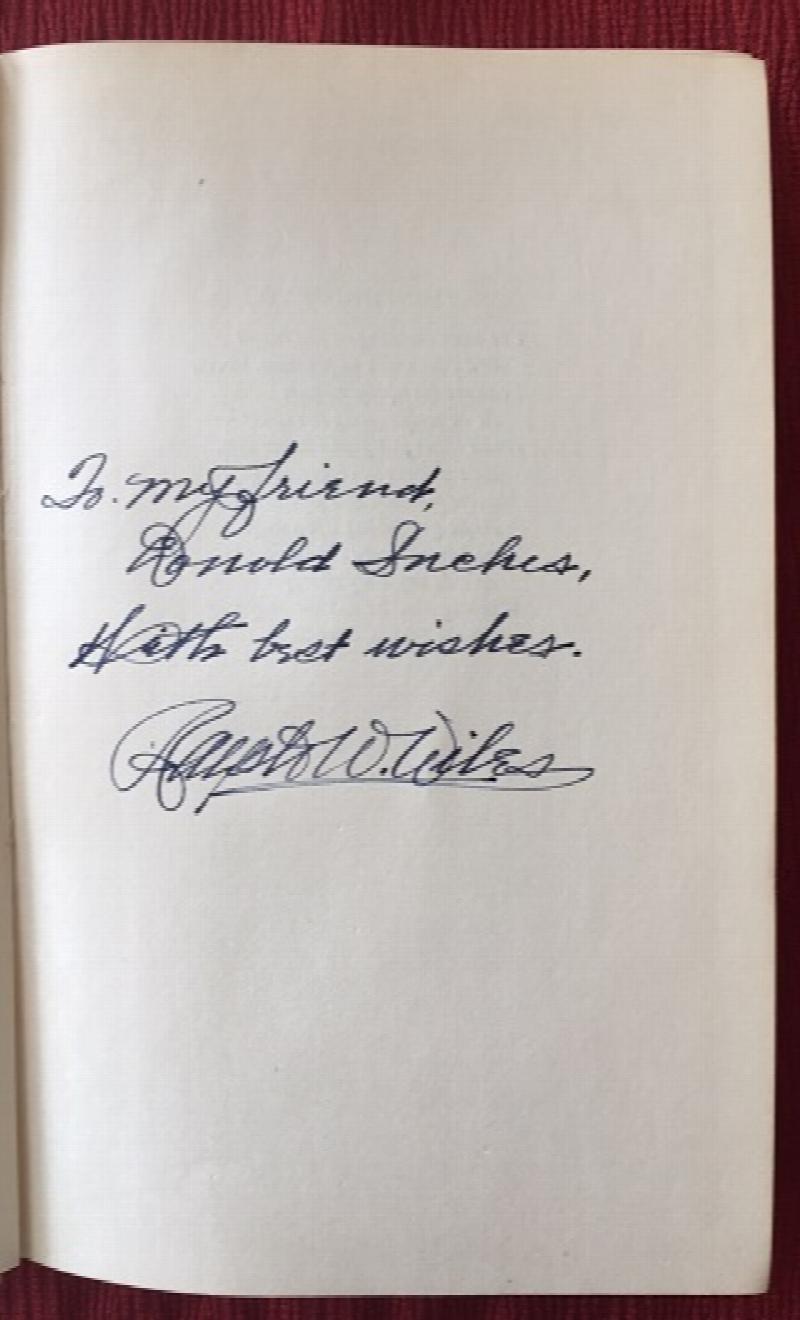 To. my friend,
Ronold Inches,
With best wishes.
Ralph W. Wiles